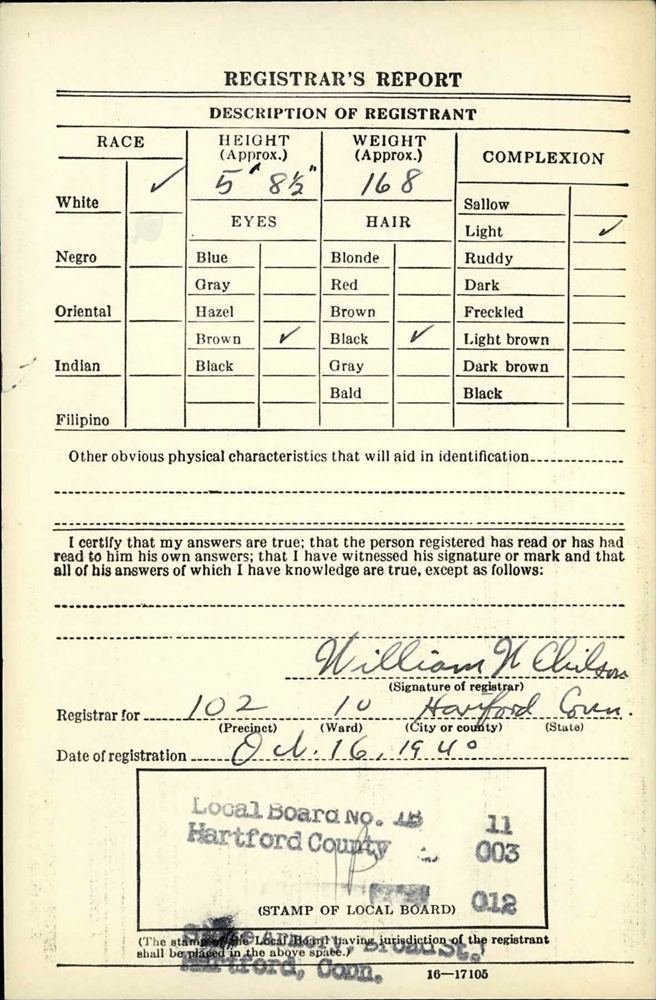 REGISTRAR'S REPORT
DESCRIPTION OF REGISTRANT
RACE
HEIGHT (Approx.)
WEIGHT (Approx.)
COMPLEXION
5' 8½"
168
White ✓
Sallow
EYES
HAIR
Light ✓
Negro
Blue
Blonde
Ruddy
Gray
Red
Dark
Oriental
Hazel
Brown
Freckled
Brown ✓
Black ✓
Light brown
Indian
Black
Gray
Dark brown
Bald
Black
Filipino
Other obvious physical characteristics that will aid in identification
I certify that my answers are true; that the person registered has read or has had
read to him his own answers; that I have witnessed his signature or mark and that
all of his answers of which I have knowledge are true, except as follows:
William N Chilson
(Signature of registrar)
Registrar for 102 10 Harford Conn.
(Precinct) (Ward) (City or county) (State)
Date of registration Oct. 16, 1940
Local Board No. 1B 11
Hartford County 003
012
(STAMP OF LOCAL BOARD)
State Armory, Broad St.,
(The stamp of the Local Board having jurisdiction of the registrant
shall be placed in the above space.)
Hartford, Conn.
16—17105